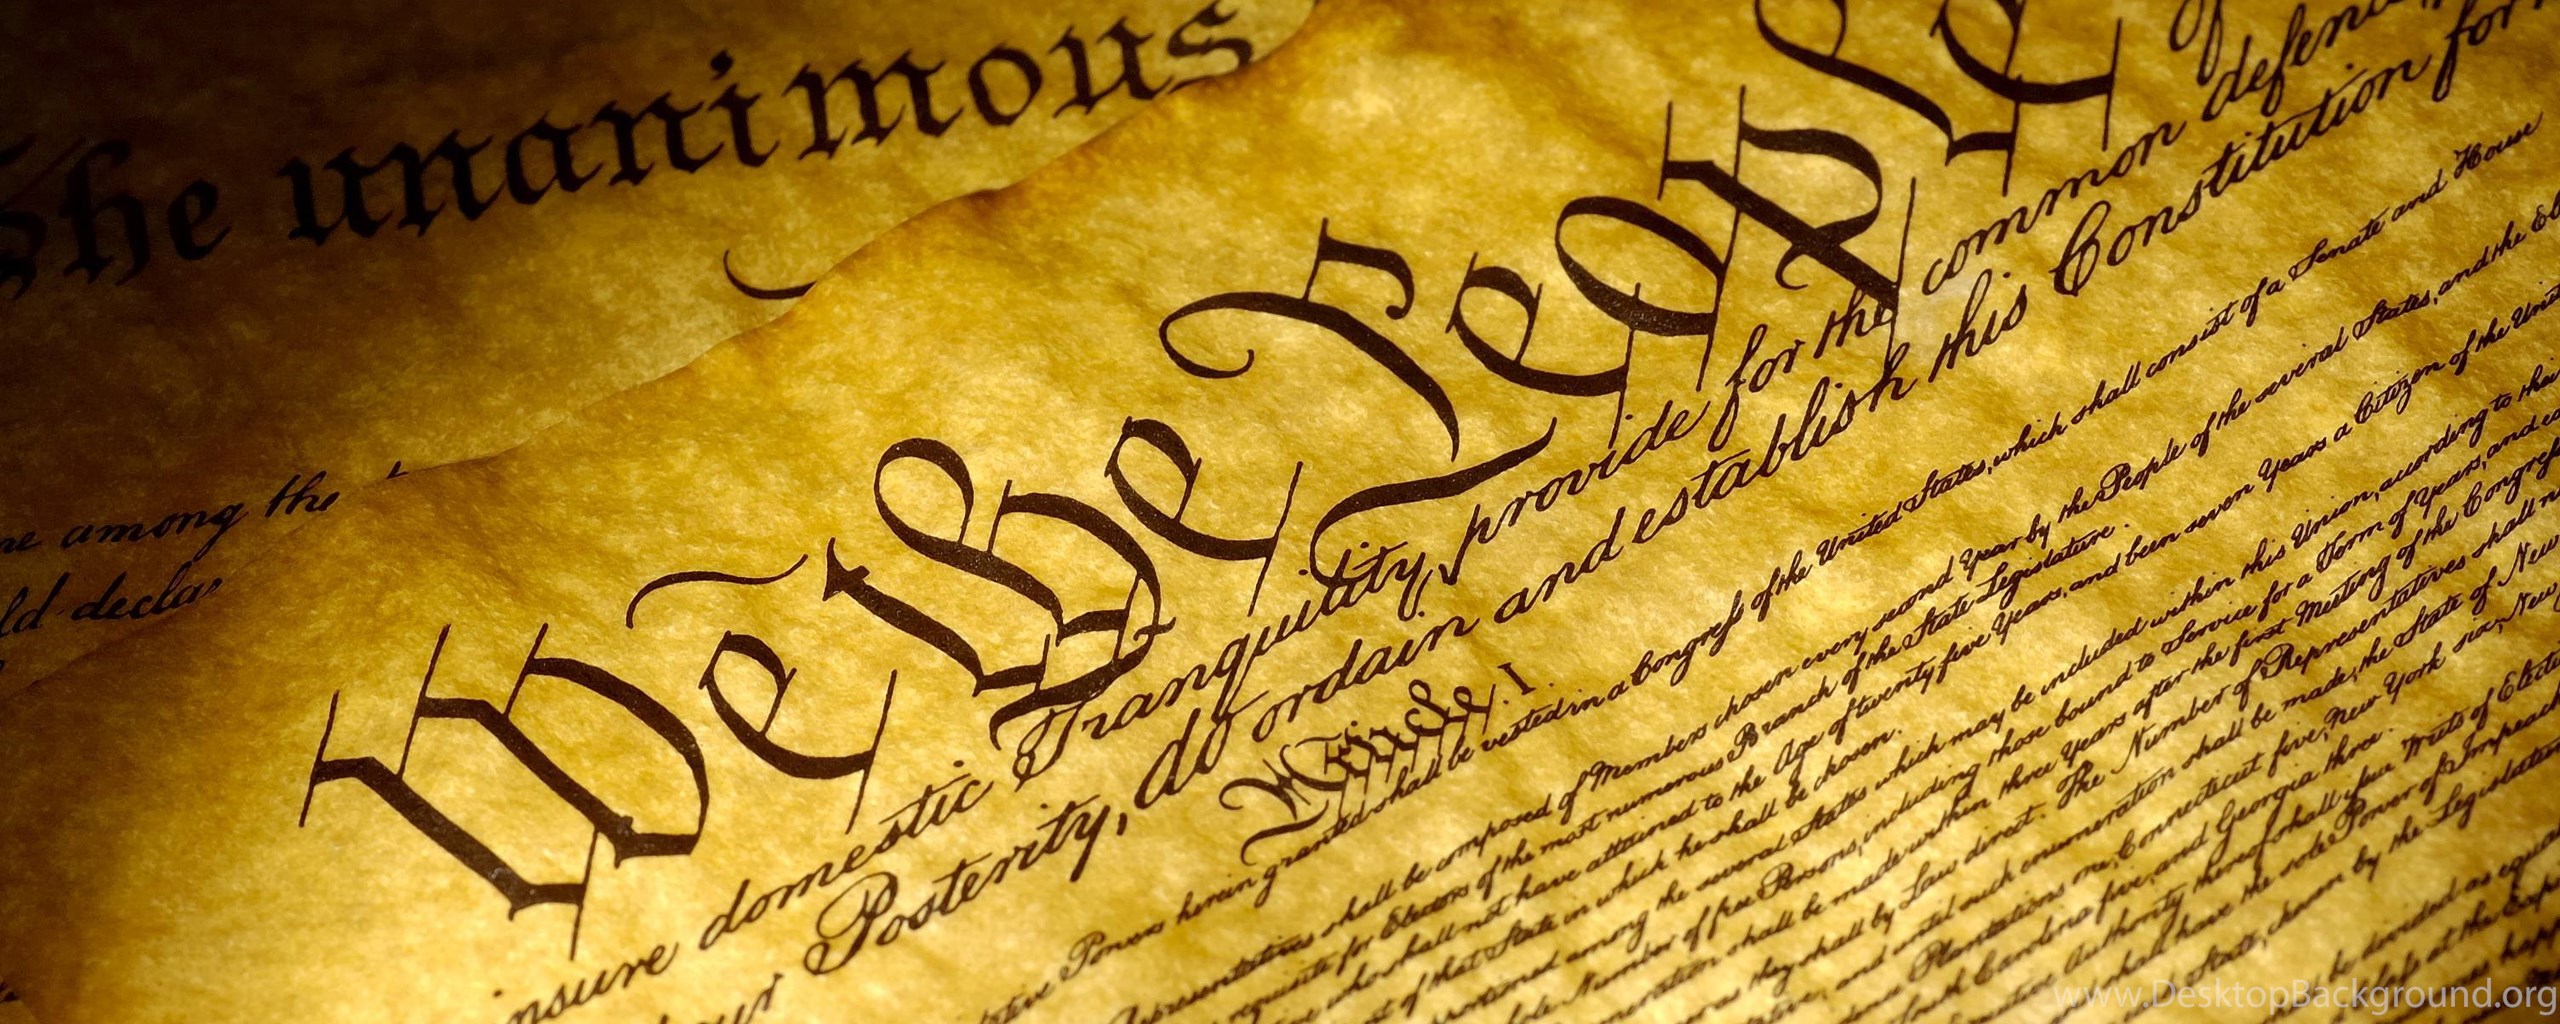 The unanimous
among the
We the People
insure domestic Tranquility, provide for the common defence,
Posterity, do ordain and establish this Constitution for
Article. I.
Powers herein granted shall be vested in a Congress of the United States, which shall consist of a Senate and House
shall be composed of Members chosen every second Year by the People of the several States, and the
requisite for Electors of the most numerous Branch of the State Legislature.
who shall not have attained to the Age of twenty five Years, and been seven Years a Citizen of the
of that State in which he shall be chosen.
among the several States which may be included within this Union, according to their
Number of free Persons, including those bound to Service for a Term of Years, and
shall be made within three Years after the first Meeting of the Congress
they shall by Law direct. The Number of Representatives shall
and until such enumeration shall be made, the State of New
Plantations one, Connecticut five, New York six, New
Carolina five, and Georgia three.
Authority thereof shall issue Writs of
shall have the sole Power of
State, chosen by the
be divided as
at the
www.DesktopBackground.org